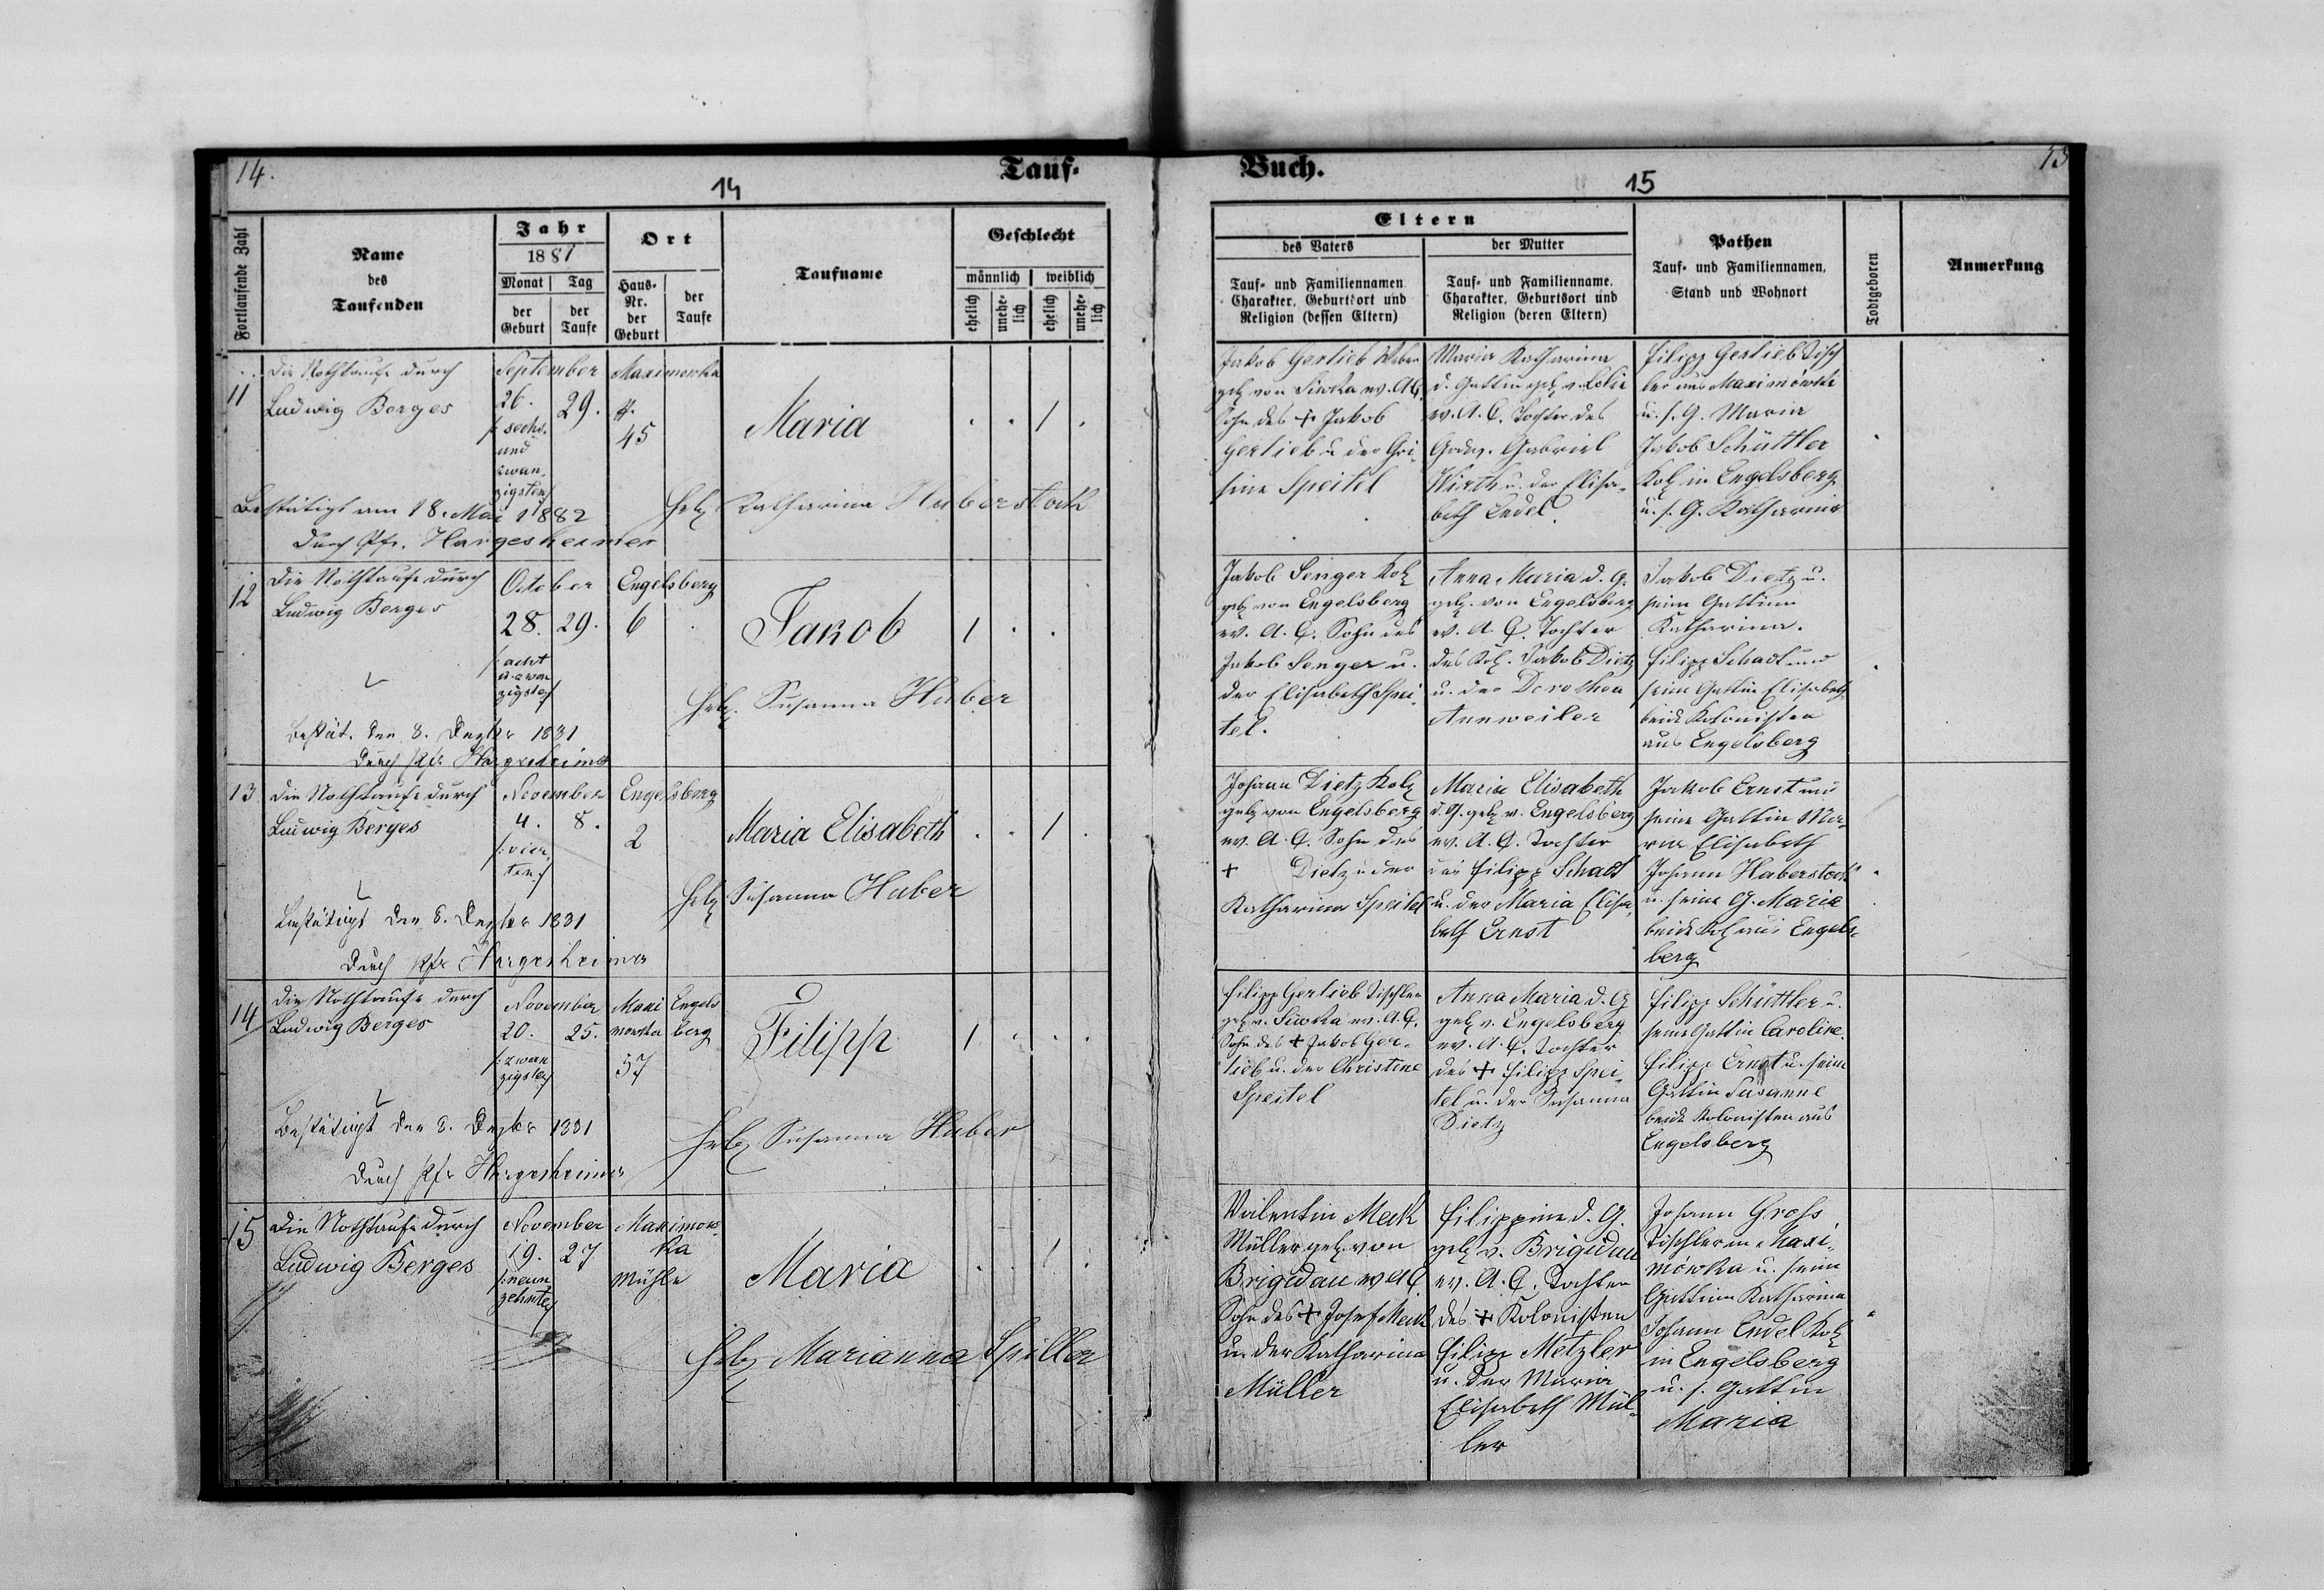 14.
Tauf-
14
Fortlaufende Zahl
Name
des
Taufenden
Jahr
1881
Monat
Tag
der
Geburt
der
Taufe
Ort
Haus-
Nr.
der
Geburt
der
Taufe
Taufname
Geschlecht
männlich
weiblich
ehelich
unehe-
lich
ehelich
unehe-
lich
11
Die Nothtaufe durch
Ludwig Berges
September
26.
29.
/: sechs
und
zwan
zigsten/
Maximowka
45
Maria
1
Bestätigt am 18. Mai 1882
durch Pfr. Hargesheimer
Heb. Katharina Huberstock
12
Die Nothtaufe durch
Ludwig Berges
October
28.
29.
/: acht
u. zwan
zigsten/
Engelsberg
6
Jakob
1
Heb. Susanna Huber
Bestät. den 8. Dezbr 1881
durch Pfr Hargesheimer
13
Die Nothtaufe durch
Ludwig Berges
November
4.
8.
/: vier
ten/
Engelsberg
2
Maria Elisabeth
1
Heb. Susanna Huber
Bestätigt den 8. Dezbr 1881
durch Pfr Hargesheimer
14
Die Nothtaufe durch
Ludwig Berges
November
20.
25.
/: zwan
zigsten/
Maxi
mowka
57
Engels
berg
Filipp
1
Bestätigt den 8. Dezbr 1881
durch Pfr Hargesheimer
Heb. Susanna Huber
15
Die Nothtaufe durch
Ludwig Berges
November
19.
27
/: neun
zehnten/
Maximow
ka
Mühle
Maria
1
Heb. Marianna Spiller
Buch.
15
15
Eltern
des Vaters
Tauf- und Familiennamen
Charakter, Geburtsort und
Religion (dessen Eltern)
der Mutter
Tauf- und Familienname,
Charakter, Geburtsort und
Religion (deren Eltern)
Pathen
Tauf- und Familiennamen,
Stand und Wohnort
Todtgeboren
Anmerkung
Jakob Gerlieb Weber
geb. von Siwka ev. A.C.
Sohn des + Jakob
Gerlieb u. der Chri-
stine Speitel
Maria Katharina
d. Gattin geb. v.
ev. A. C. Tochter des
Gabriel
Wirth u. der Elisa-
beth Endel.
Filipp Gerlieb Tisch
ler aus Maximówka
u. s. G. Maria
Jakob Schüttler
Kol. in Engelsberg
u. s. G. Katharina
Jakob Senger Kol.
geb. von Engelsberg
ev. A. C. Sohn des
Jakob Senger u.
der Elisabeth Spei-
tel.
Anna Maria d. G.
geb. von Engelsberg
ev. A. C. Tochter
des Kol. Jakob Dietz
u. der Dorothea
Annweiler
Jakob Dietz u.
seine Gattinn
Katharina.
Filipp Schadt und
seine Gattin Elisabeth
beide Kolonisten
aus Engelsberg
Johann Dietz Kol.
geb. von Engelsberg
ev. A. C. Sohn des
+ Dietz u. der
Katharina Speitel
Maria Elisabeth
d. G. geb. v. Engelsberg
ev. A. C. Tochter
des Filipp Schadt
u. der Maria Elisa-
beth Ernst
Jakob Ernst und
seine Gattin Ma-
ria Elisabeth
Johann Haberstock
u. seine G. Maria
beide Kol. aus Engels-
berg
Filipp Gerlieb Tischler
geb. v. Siwka ev. A. C.
Sohn des + Jakob Ger-
lieb u. der Christine
Speitel
Anna Maria d. G.
geb. v. Engelsberg
ev. A. C. Tochter
des + Filipp Spei-
tel u. der Susanna
Dietz
Filipp Schüttler u.
seine Gattin Caroline.
Filipp Ernst u. seine
Gattin Susanne
beide Kolonisten aus
Engelsberg
Valentin Meck
Müller geb. von
Brigidau ev. A.C.
Sohn des + Josef Meck
u. der Katharina
Müller
Filippine d. G.
geb. v. Brigidau
ev. A. C. Tochter
des + Kolonisten
Filipp Metzler
u. der Maria
Elisabeth Mül-
ler
Johann Gross
Tischler in Maxi-
mówka u. seine
Gattinn Katharina
Johann Endel Kol.
in Engelsberg
u. s. Gattin
Maria